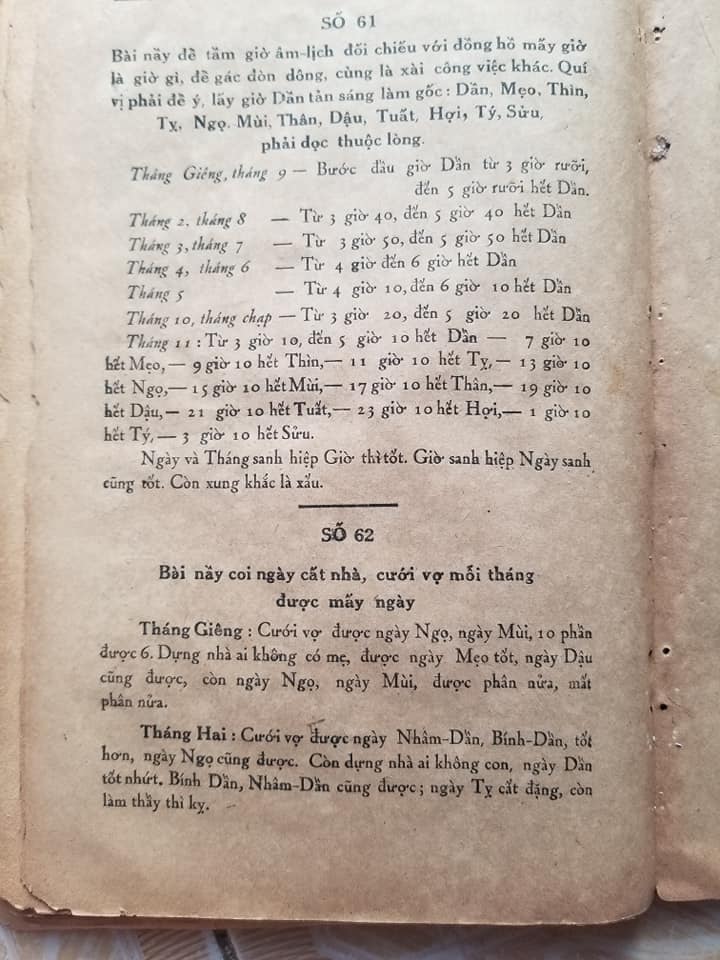 SỐ 61
Bài nầy để tầm giờ âm-lịch đối chiếu với đồng hồ mấy giờ
là giờ gì, để gác đòn dông, cùng là xài công việc khác. Quí
vị phải để ý, lấy giờ Dần tản sáng làm gốc: Dần, Mẹo, Thìn,
Tỵ, Ngọ, Mùi, Thân, Dậu, Tuất, Hợi, Tý, Sửu,
phải đọc thuộc lòng.
Tháng Giêng, tháng 9 — Bước đầu giờ Dần từ 3 giờ rưỡi,
đến 5 giờ rưỡi hết Dần.
Tháng 2, tháng 8 — Từ 3 giờ 40, đến 5 giờ 40 hết Dần
Tháng 3, tháng 7 — Từ 3 giờ 50, đến 5 giờ 50 hết Dần
Tháng 4, tháng 6 — Từ 4 giờ đến 6 giờ hết Dần
Tháng 5 — Từ 4 giờ 10, đến 6 giờ 10 hết Dần
Tháng 10, tháng chạp — Từ 3 giờ 20, đến 5 giờ 20 hết Dần
Tháng 11 : Từ 3 giờ 10, đến 5 giờ 10 hết Dần — 7 giờ 10
hết Mẹo,— 9 giờ 10 hết Thìn,— 11 giờ 10 hết Tỵ,— 13 giờ 10
hết Ngọ,— 15 giờ 10 hết Mùi,— 17 giờ 10 hết Thân,— 19 giờ 10
hết Dậu,— 21 giờ 10 hết Tuất,— 23 giờ 10 hết Hợi,— 1 giờ 10
hết Tý,— 3 giờ 10 hết Sửu.
Ngày và Tháng sanh hiệp Giờ thì tốt. Giờ sanh hiệp Ngày sanh
cũng tốt. Còn xung khắc là xấu.
SỐ 62
Bài nầy coi ngày cất nhà, cưới vợ mỗi tháng
được mấy ngày
Tháng Giêng : Cưới vợ được ngày Ngọ, ngày Mùi, 10 phần
được 6. Dựng nhà ai không có mẹ, được ngày Mẹo tốt, ngày Dậu
cũng được, còn ngày Ngọ, ngày Mùi, được phân nửa, mất
phân nửa.
Tháng Hai : Cưới vợ được ngày Nhâm-Dần, Bính-Dần, tốt
hơn, ngày Ngọ cũng được. Còn dựng nhà ai không con, ngày Dần
tốt nhứt. Bính Dần, Nhâm-Dần cũng được ; ngày Tỵ cất đặng, còn
làm thầy thì kỵ.